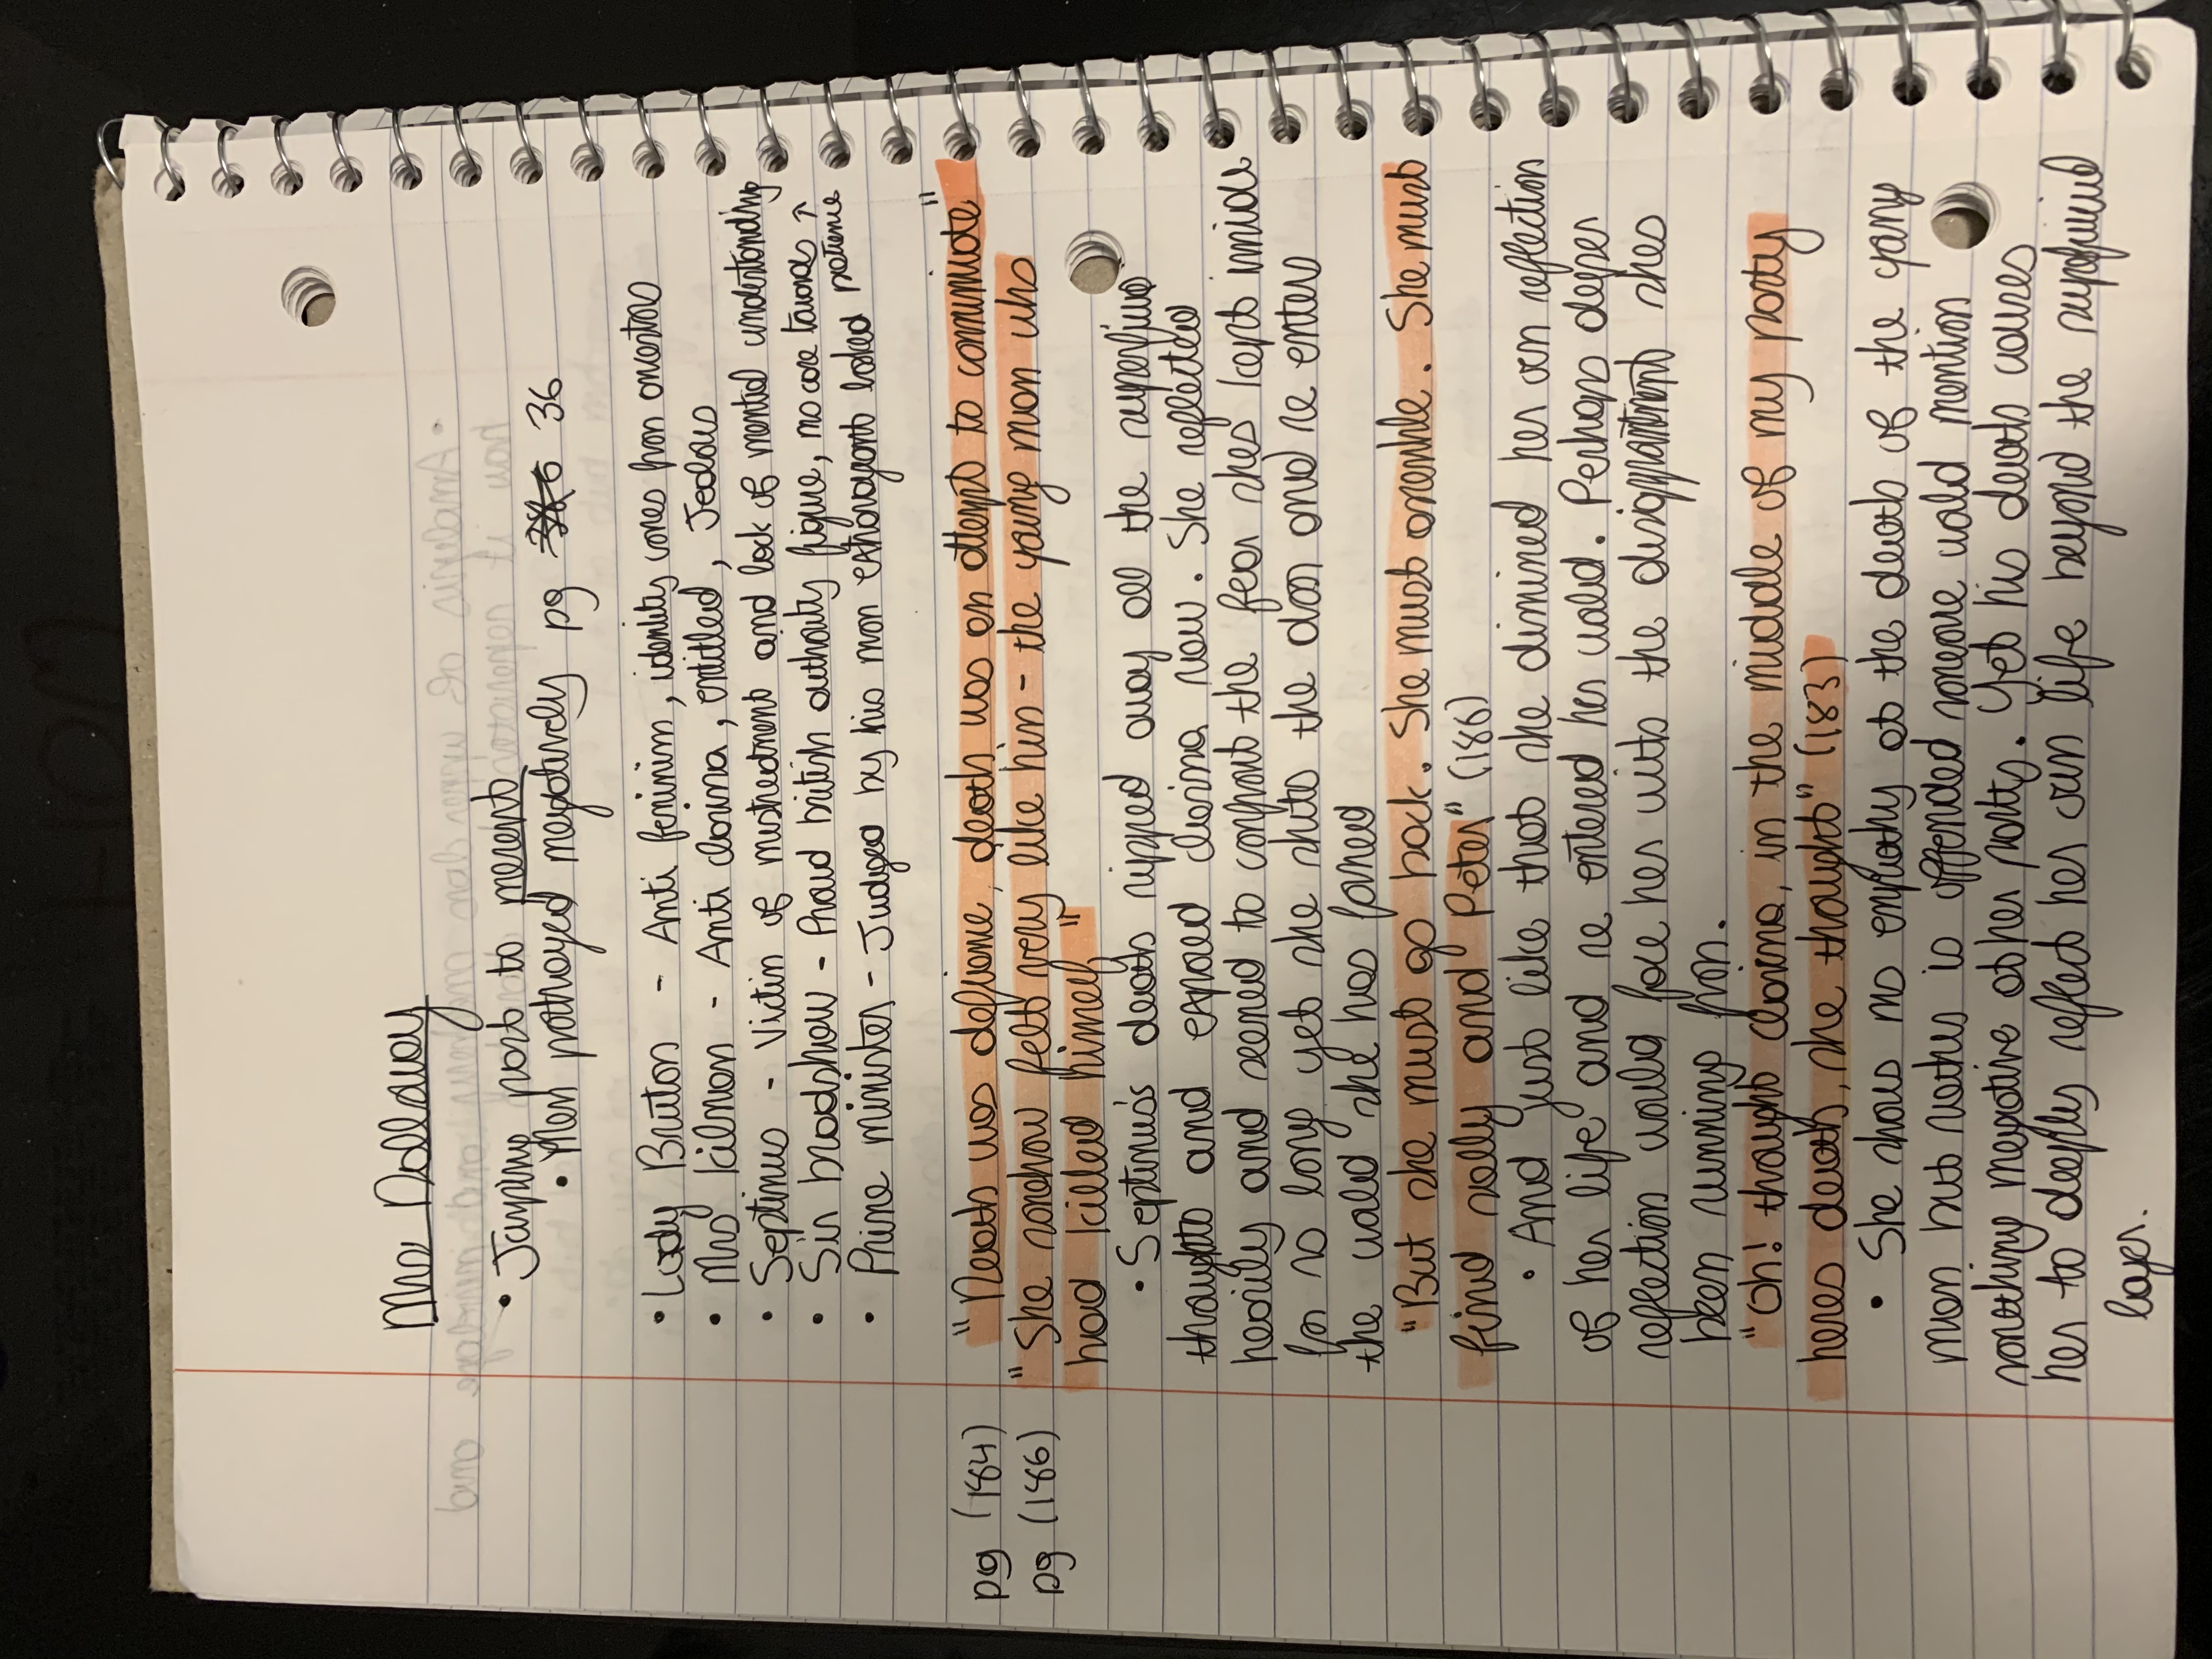 Mrs Dalloway
• Jumping past to present
• Men portrayed negatively pg 36
• Lady Bruton - Anti feminism, identity comes from ancestors
• Mrs Kilman - Anti clarissa, entitled, Jealous
• Septimus - Victim of mistreatment and lack of mental understanding
• Sir bradshaw - Proud british authority figure, no care towards ↗
patience
• Prime minister - Judged by his non extravagant looked
pg (184) "Death was defiance, death was an attempt to communicate"
pg (186) "She somehow felt very like him - the young man who
had killed himself"
• Septimus's death ripped away all the
thoughts and exposed clarissa raw. She reflected
heavily and seemed to confront the fear shes kept inside
for so long yet she shuts the door and re enters
the world she has formed
"But she must go back. She must assemble. She must
find sally and Peter" (186)
• And just like that she dismissed her own reflection
of her life and re entered her world. Perhaps deeper
reflection would face her with the disappointment shes
been running from.
"Oh! thought clarissa, in the middle of my party
heres death, she thought" (183)
• She shows no empathy at the death of the young
man but rather is offended someone would mention
something negative at her party. Yet his death causes
her to deeply reflect her own life beyond the
layer.